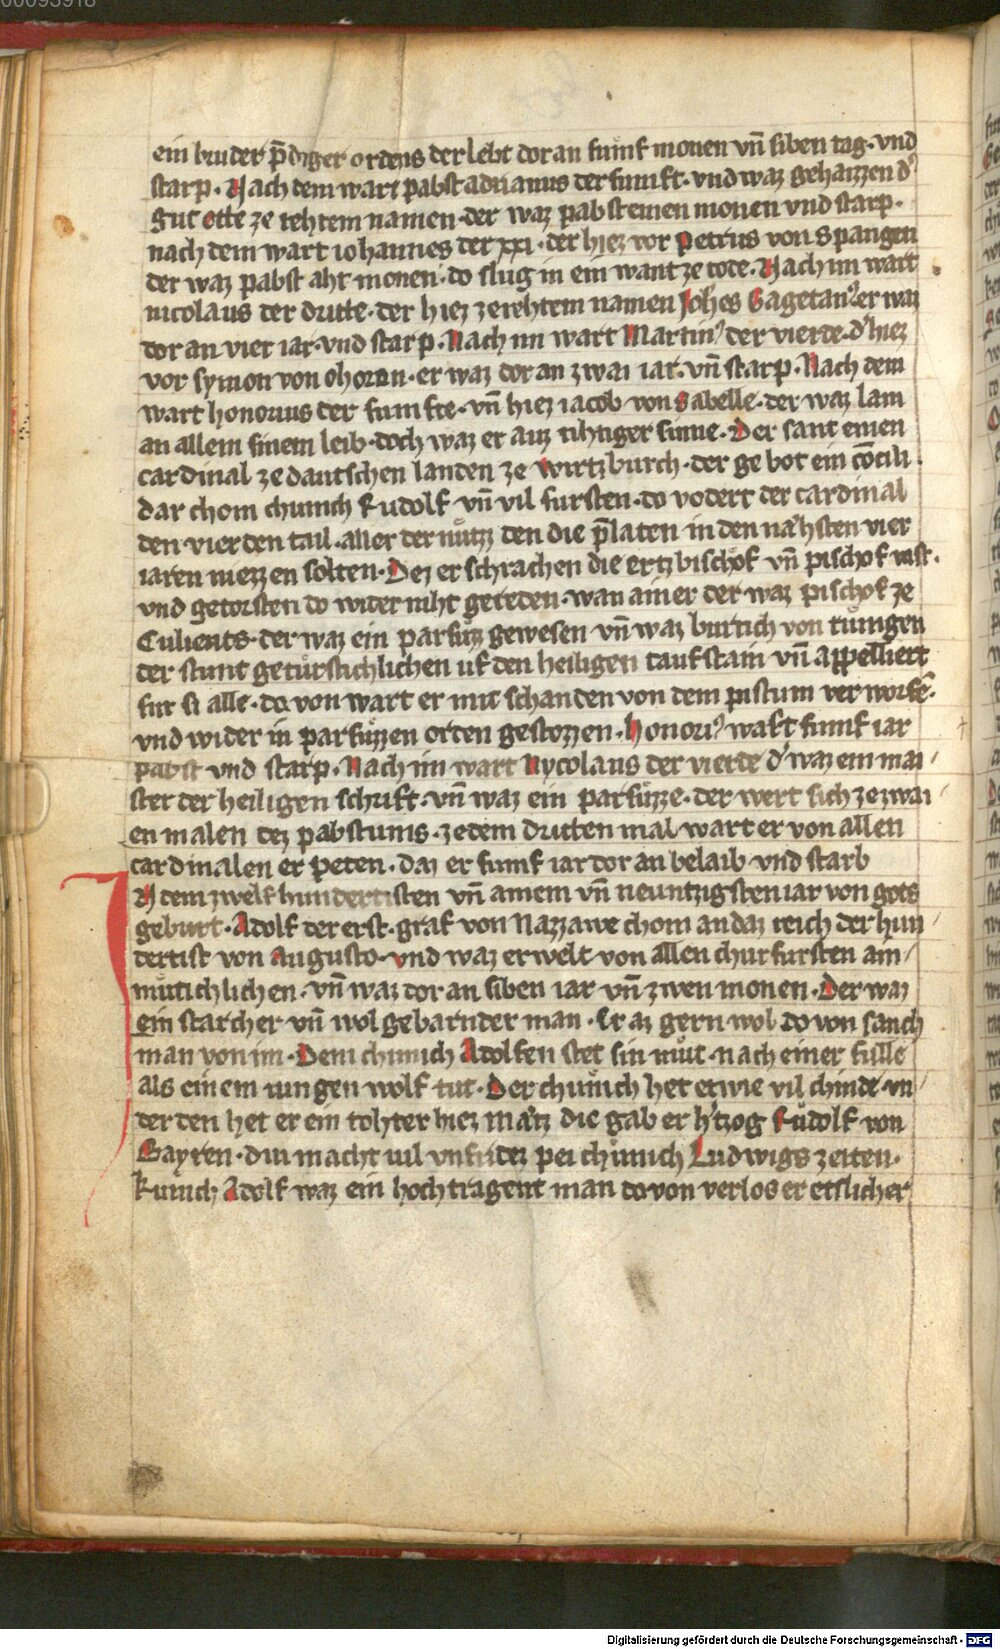 00093918
ein bruder p̄diger ordens der lebt dor an fuinf monen vn̄ siben tag · vnd
starp · Nach dem wart pabst adrianus der funft · vnd waz gehaizzen d᾽
gut otte ze rehtem namen · der waz pabst einen monen vnd starp ·
nach dem wart iohannes der xxi · der hiez vor Petrus von Spangen
der waz pabst aht monen · do slug in ein want ze tode · Nach im wart
nicolaus der dritte · der hiez ze rehtem namen Joh̄es Gagetan᾽ er waz
dor an vier iar · vnd starp · Nach im wart Martin᾽ der vierde · d᾽ hiez
vor symon von choran · er waz dor an zwai iar · vn̄ starp · Nach dem
wart honorius der funfte · vn̄ hiez iacob von Sabelle · der waz lam
an allem sinem leib · doch waz er auz rihtiger sinne · Der sant einen
cardinal ze dautschen landen ze Wirtzburch · der gebot ein cōcili ·
dar chom chunich Rudolf vn̄ vil fursten · do vodert der cardinal
den vierden tail · aller der nuͤtz den die p̄laten in den naͤhsten vier
iaren niezzen solten · Dez erschrachen die ertzbischof vn̄ pischof vast ·
vnd getorsten do wider niht gereden · wan ainer der waz pischof ze
Culients · der waz ein parfuzz gewesen vn̄ waz burtich von tuingen
der stunt getuͤrstichlichen uf den heiligen taufstain vn̄ appelliert
fur si alle · do von wart er mit schanden von dem pistum verworfē ·
vnd wider in parfuzzen orden gestozzen · Honori᾽ waz fuinf iar
pabst vnd starp · Nach im wart Nycolaus der vierde d᾽ waz ein mai
ster der heiligen schrift · vn̄ waz ein parfuzze · der wert sich ze zwai
en malen dez pabstums · ze dem dritten mal wart er von allen
cardinalen erpeten · daz er fuinf iar dor an belaib vnd starb
IN dem zwelf hundertisten vn̄ ainem vn̄ neuntzigsten iar von gots
geburt · Adolf der erst · graf von Nazzawe chom an daz reich der hun
dertist von augusto · vnd waz erwelt von allen churfursten ain
muͤtichlichen · vn̄ waz dor an siben iar vn̄ zwen monen · Der waz
ein starcher vn̄ wol gebarnder man · Er az gern wol do von sanch
man von im · Dem chunich Adolfen stet sin muͤt · nach einer fulle
als einem iungen wolf tut · Der chuͤnich het etwie vil chinde · vn
der den het er ein tohter hiez Maͤtz die gab er h᾽tzog Rudolf von
Bayren · diu macht vil vnfridez pei chuͤnich Ludwigs zeiten ·
Kunich Adolf waz ein hochtragent man do von verlos er etslicher
Digitalisierung gefördert durch die Deutsche Forschungsgemeinschaft - DFG